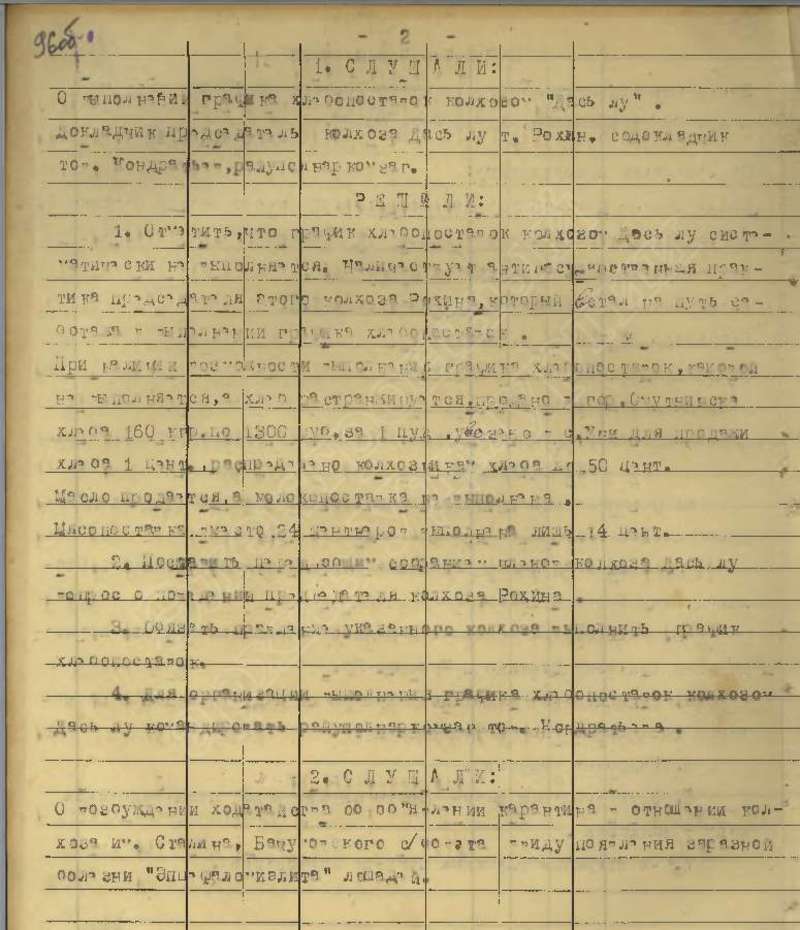 96об
- 2 -
1. С Л У Ш А Л И:
О выполнении графика хлебопоставок колхозом "Дась лу".
Докладчик председатель колхоза Дась лу т. Рохин, содокладчик
тов. Кондратьев,
Р Е Ш И Л И:
1. Отметить, что график хлебопоставок колхозом Дась лу систе-
матически не выполняется. Наличествует антигосударственная прак-
тика председателя этого колхоза Рохина, который встал на путь са-
ботажа в выполнении графика хлебопоставок.
При наличии возможности выполнения графика хлебопоставок, таковой
не выполняется, а хлеб растранжируется, продано в гор. Омутнинске
хлеба 160 кгр. по 1300 руб. за 1 пуд, увезено в для продажи
хлеба 1 цент., распределено колхозникам хлеба до 50 цент.
Масло продается, а молокопоставка не выполнена.
Мясопоставка вместо 24 центнеров выполнена лишь 14 цент.
2. Поставить перед общим собранием членов колхоза Дась лу
вопрос о поведении председателя колхоза Рохина.
3. Обязать правление указанного колхоза выполнить график
хлебопоставок.
4. Для организации выполнения графика хлебопоставок колхозом
Дась лу командировать тов. Кондратьева.
2. С Л У Ш А Л И:
О возбуждении ходатайства об об'явлении карантина в отношении кол-
хоза им. Сталина, с/совета ввиду появления заразной
болезни "Энцефаломиэлита" лошадей.